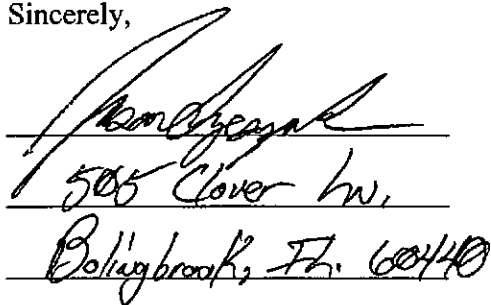 Sincerely,
505 Clover Ln.
Bolingbrook, IL. 60440